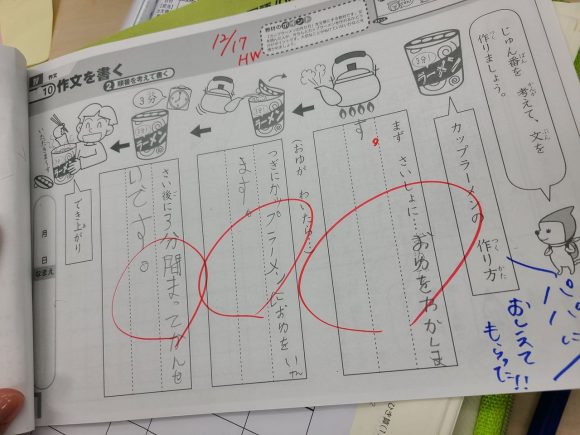 12/17
HW
教材のポイント
10 作文を書く
2 順番を考えて書く
じゅん番を考えて、文を
作りましょう。
カップラーメンの作り方
まず さいしょに おゆをわかしま
す。
(おゆが わいたら…)
つぎにカップラーメンにおゆをいれ
ます。
3分
さい後に3分間まってかんせ
いです。
でき上がり
いただきまーす
ラーメン
ラーメン
ラーメン
ラーメン
月 日
なまえ
パパに
おしえて
もらった!!